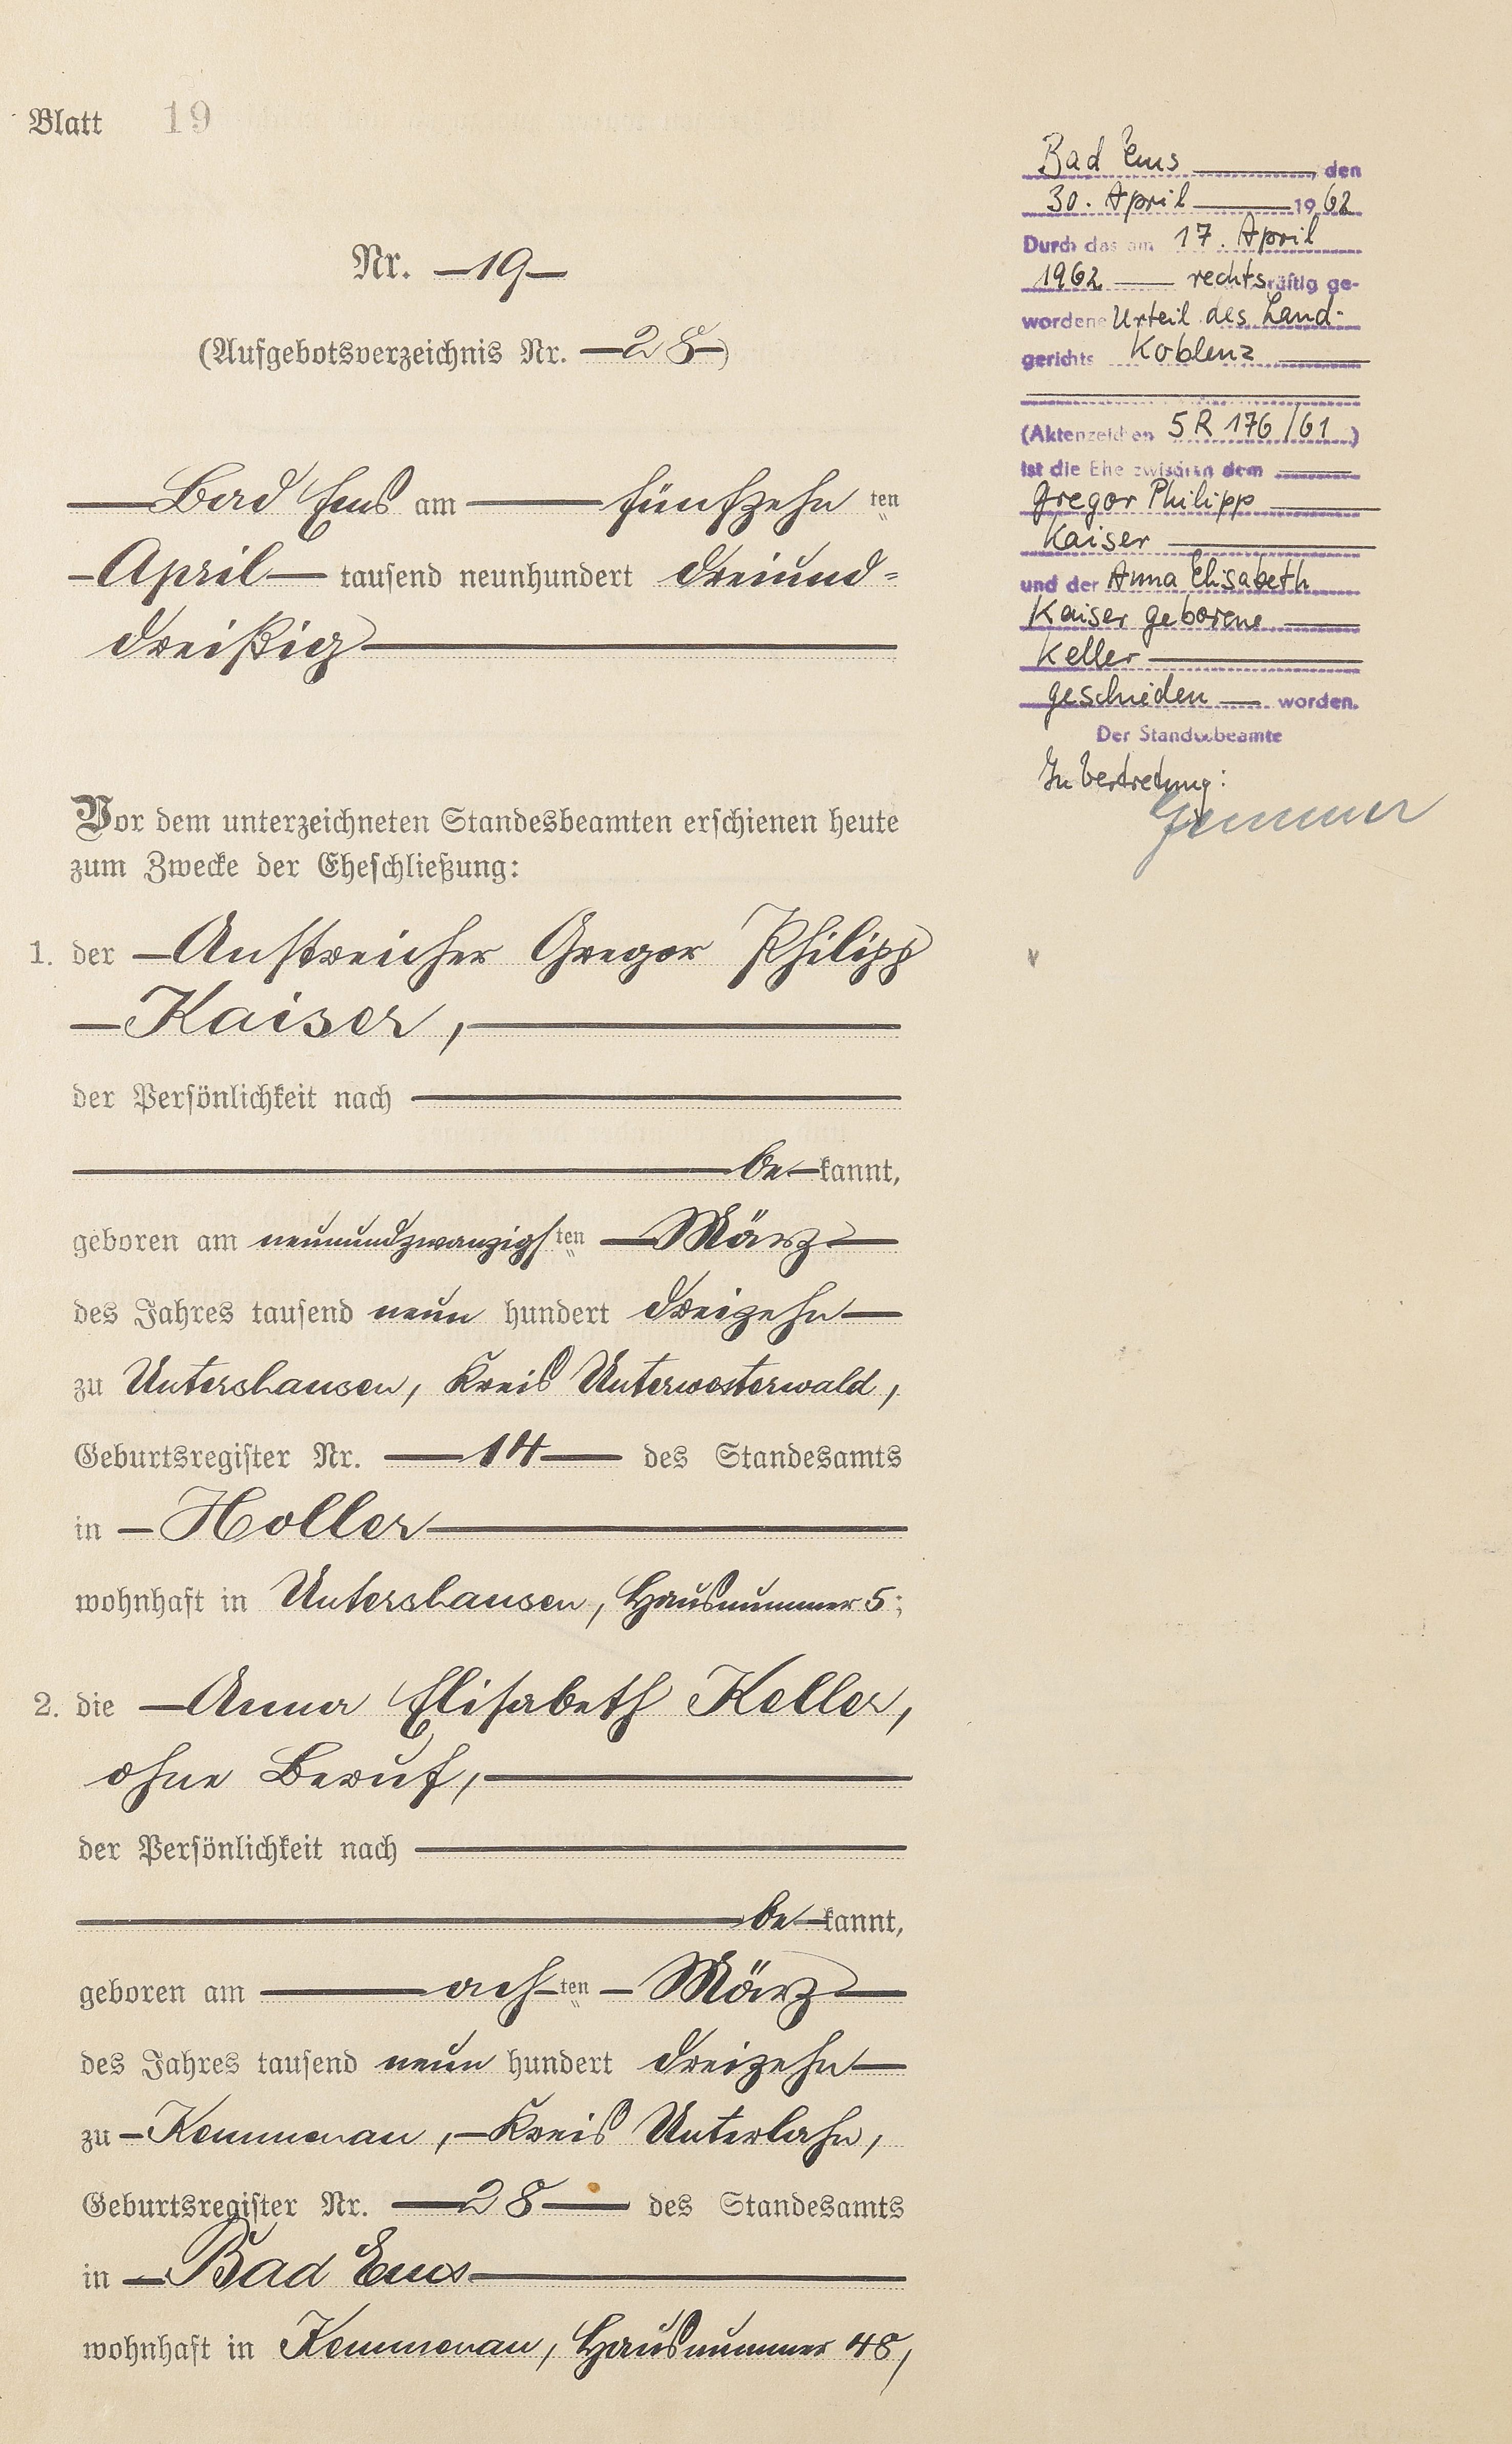 Blatt 19
Nr. 19
(Aufgebotsverzeichnis Nr. 28)
Bad Ems am fünfzehn ten
April tausend neunhundert dreiund-
dreißig
Vor dem unterzeichneten Standesbeamten erschienen heute
zum Zwecke der Eheschließung:
1. der Anstreicher Gregor Philipp
Kaiser,
der Persönlichkeit nach
be kannt,
geboren am neunundzwanzigs ten März
des Jahres tausend neun hundert dreizehn
zu Untershausen, Kreis Unterwesterwald,
Geburtsregister Nr. 14 des Standesamts
in Holler
wohnhaft in Untershausen, Hausnummer 5;
2. die Anna Elisabeth Keller,
ohne Beruf,
der Persönlichkeit nach
be kannt,
geboren am ach ten März
des Jahres tausend neun hundert dreizehn
zu Kemmenau, Kreis Unterlahn,
Geburtsregister Nr. 28 des Standesamts
in Bad Ems
wohnhaft in Kemmenau, Hausnummer 48,
Bad Ems, den
30. April 1962
Durch das am 17. April
1962 rechtskräftig ge-
wordene Urteil des Land-
gerichts Koblenz
(Aktenzeichen 5 R 176/61)
ist die Ehe zwischen dem
Gregor Philipp
Kaiser
und der Anna Elisabeth
Kaiser geborene
Keller
geschieden worden.
Der Standesbeamte
In Vertretung: